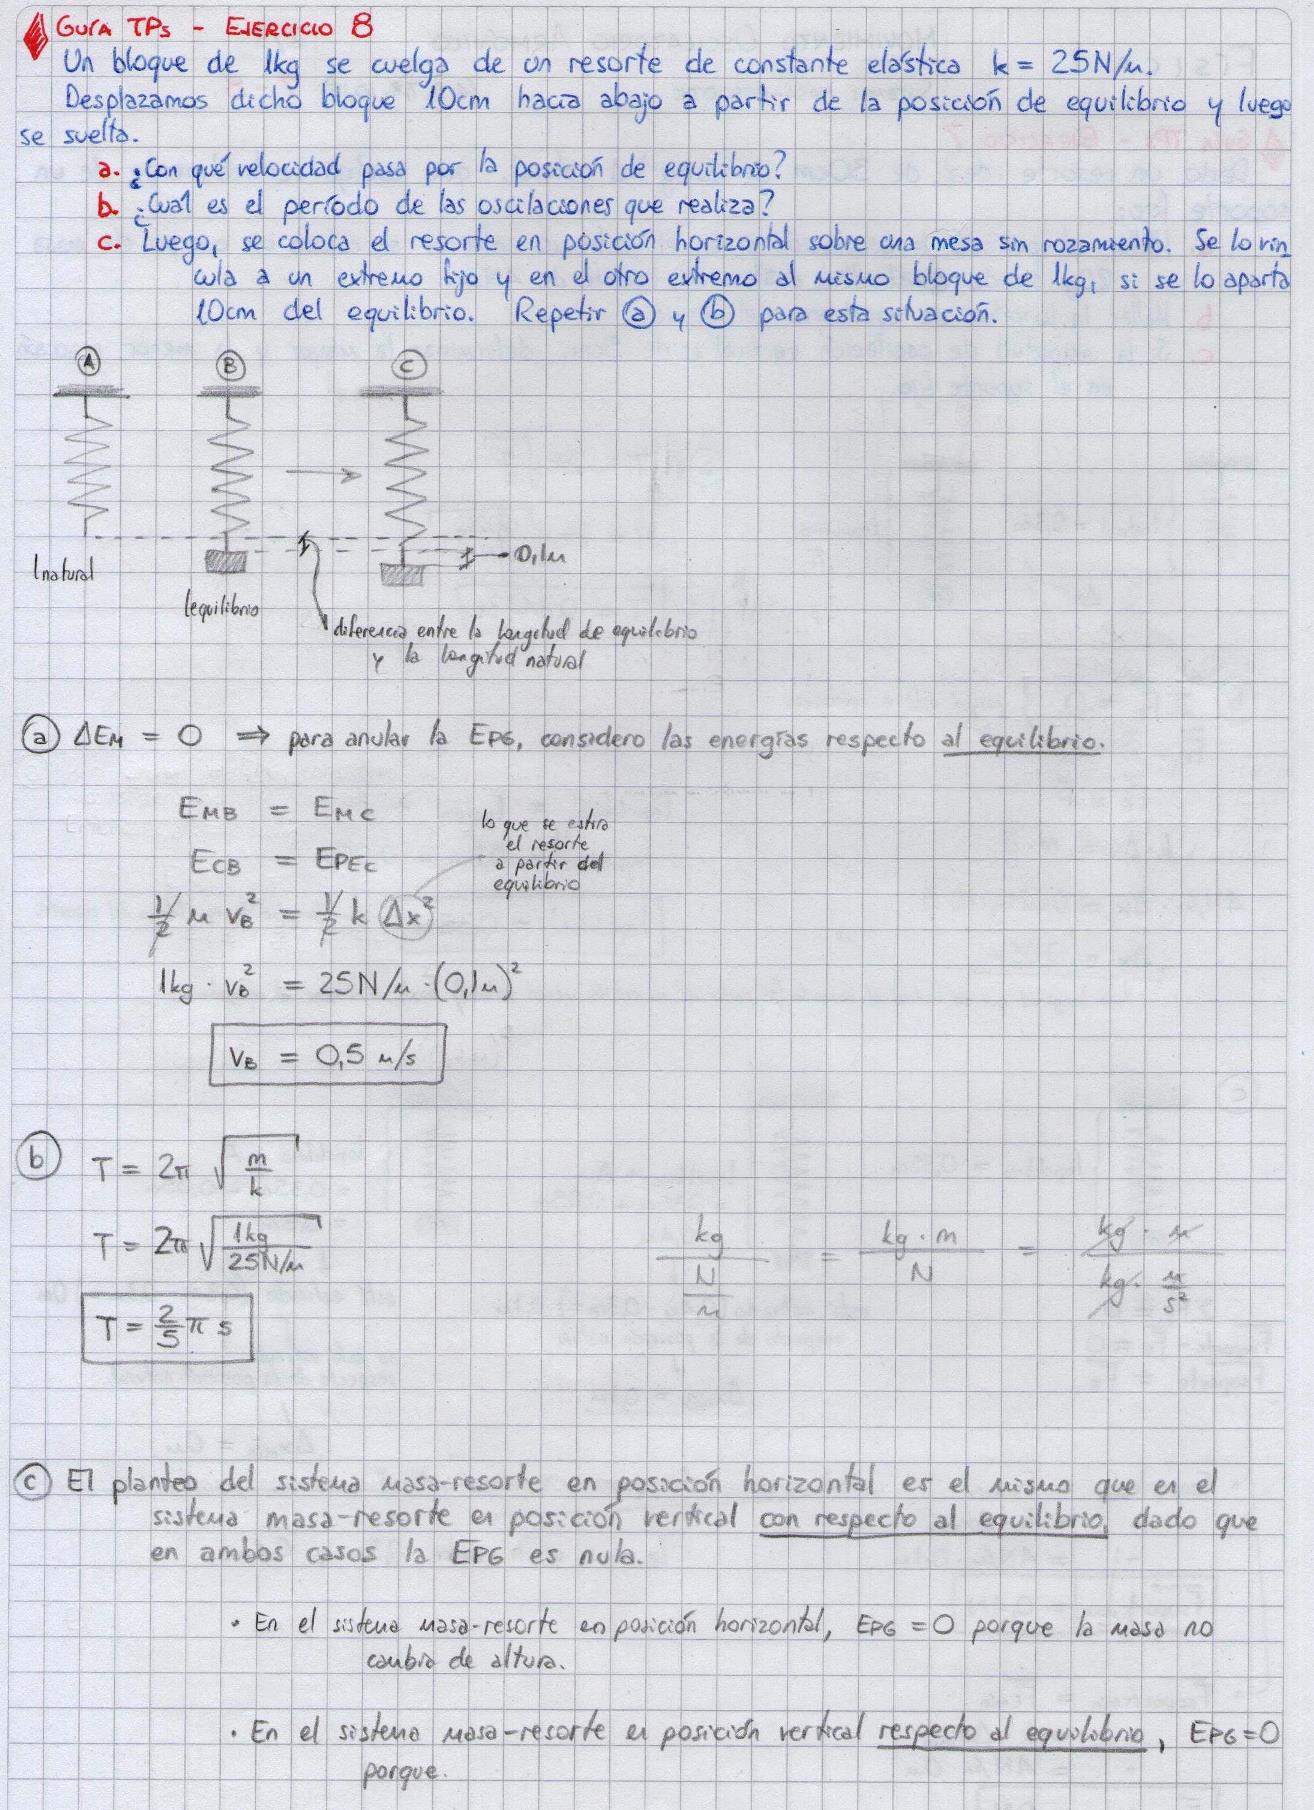 GUÍA TPs - EJERCICIO 8
Un bloque de 1kg se cuelga de un resorte de constante elástica k = 25N/m.
Desplazamos dicho bloque 10cm hacia abajo a partir de la posición de equilibrio y luego
se suelta.
a. ¿Con qué velocidad pasa por la posición de equilibrio?
b. ¿Cuál es el período de las oscilaciones que realiza?
c. Luego, se coloca el resorte en posición horizontal sobre una mesa sin rozamiento. Se lo vin
cula a un extremo fijo y en el otro extremo al mismo bloque de 1kg, si se lo aparta
10cm del equilibrio. Repetir ⓐ y ⓑ para esta situación.
Ⓐ Ⓑ Ⓒ
0,1m
lnatural
lequilibrio
diferencia entre la longitud de equilibrio
y la longitud natural
ⓐ ΔEM = 0 ⇒ para anular la EPG, considero las energías respecto al equilibrio.
EMB = EMC
lo que se estira
el resorte
a partir del
equilibrio
ECB = EPEC
1/2 m vB² = 1/2 k Δx²
1kg · vB² = 25N/m · (0,1m)²
vB = 0,5 m/s
ⓑ T = 2π √(m/k)
T = 2π √(1kg/25N/m)
kg/(N/m) = kg·m/N = kg·m/(kg·m/s²)
T = 2/5 π s
ⓒ El planteo del sistema masa-resorte en posición horizontal es el mismo que en el
sistema masa-resorte en posición vertical con respecto al equilibrio, dado que
en ambos casos la EPG es nula.
· En el sistema masa-resorte en posición horizontal, EPG = 0 porque la masa no
cambia de altura.
· En el sistema masa-resorte en posición vertical respecto al equilibrio, EPG = 0
porque.